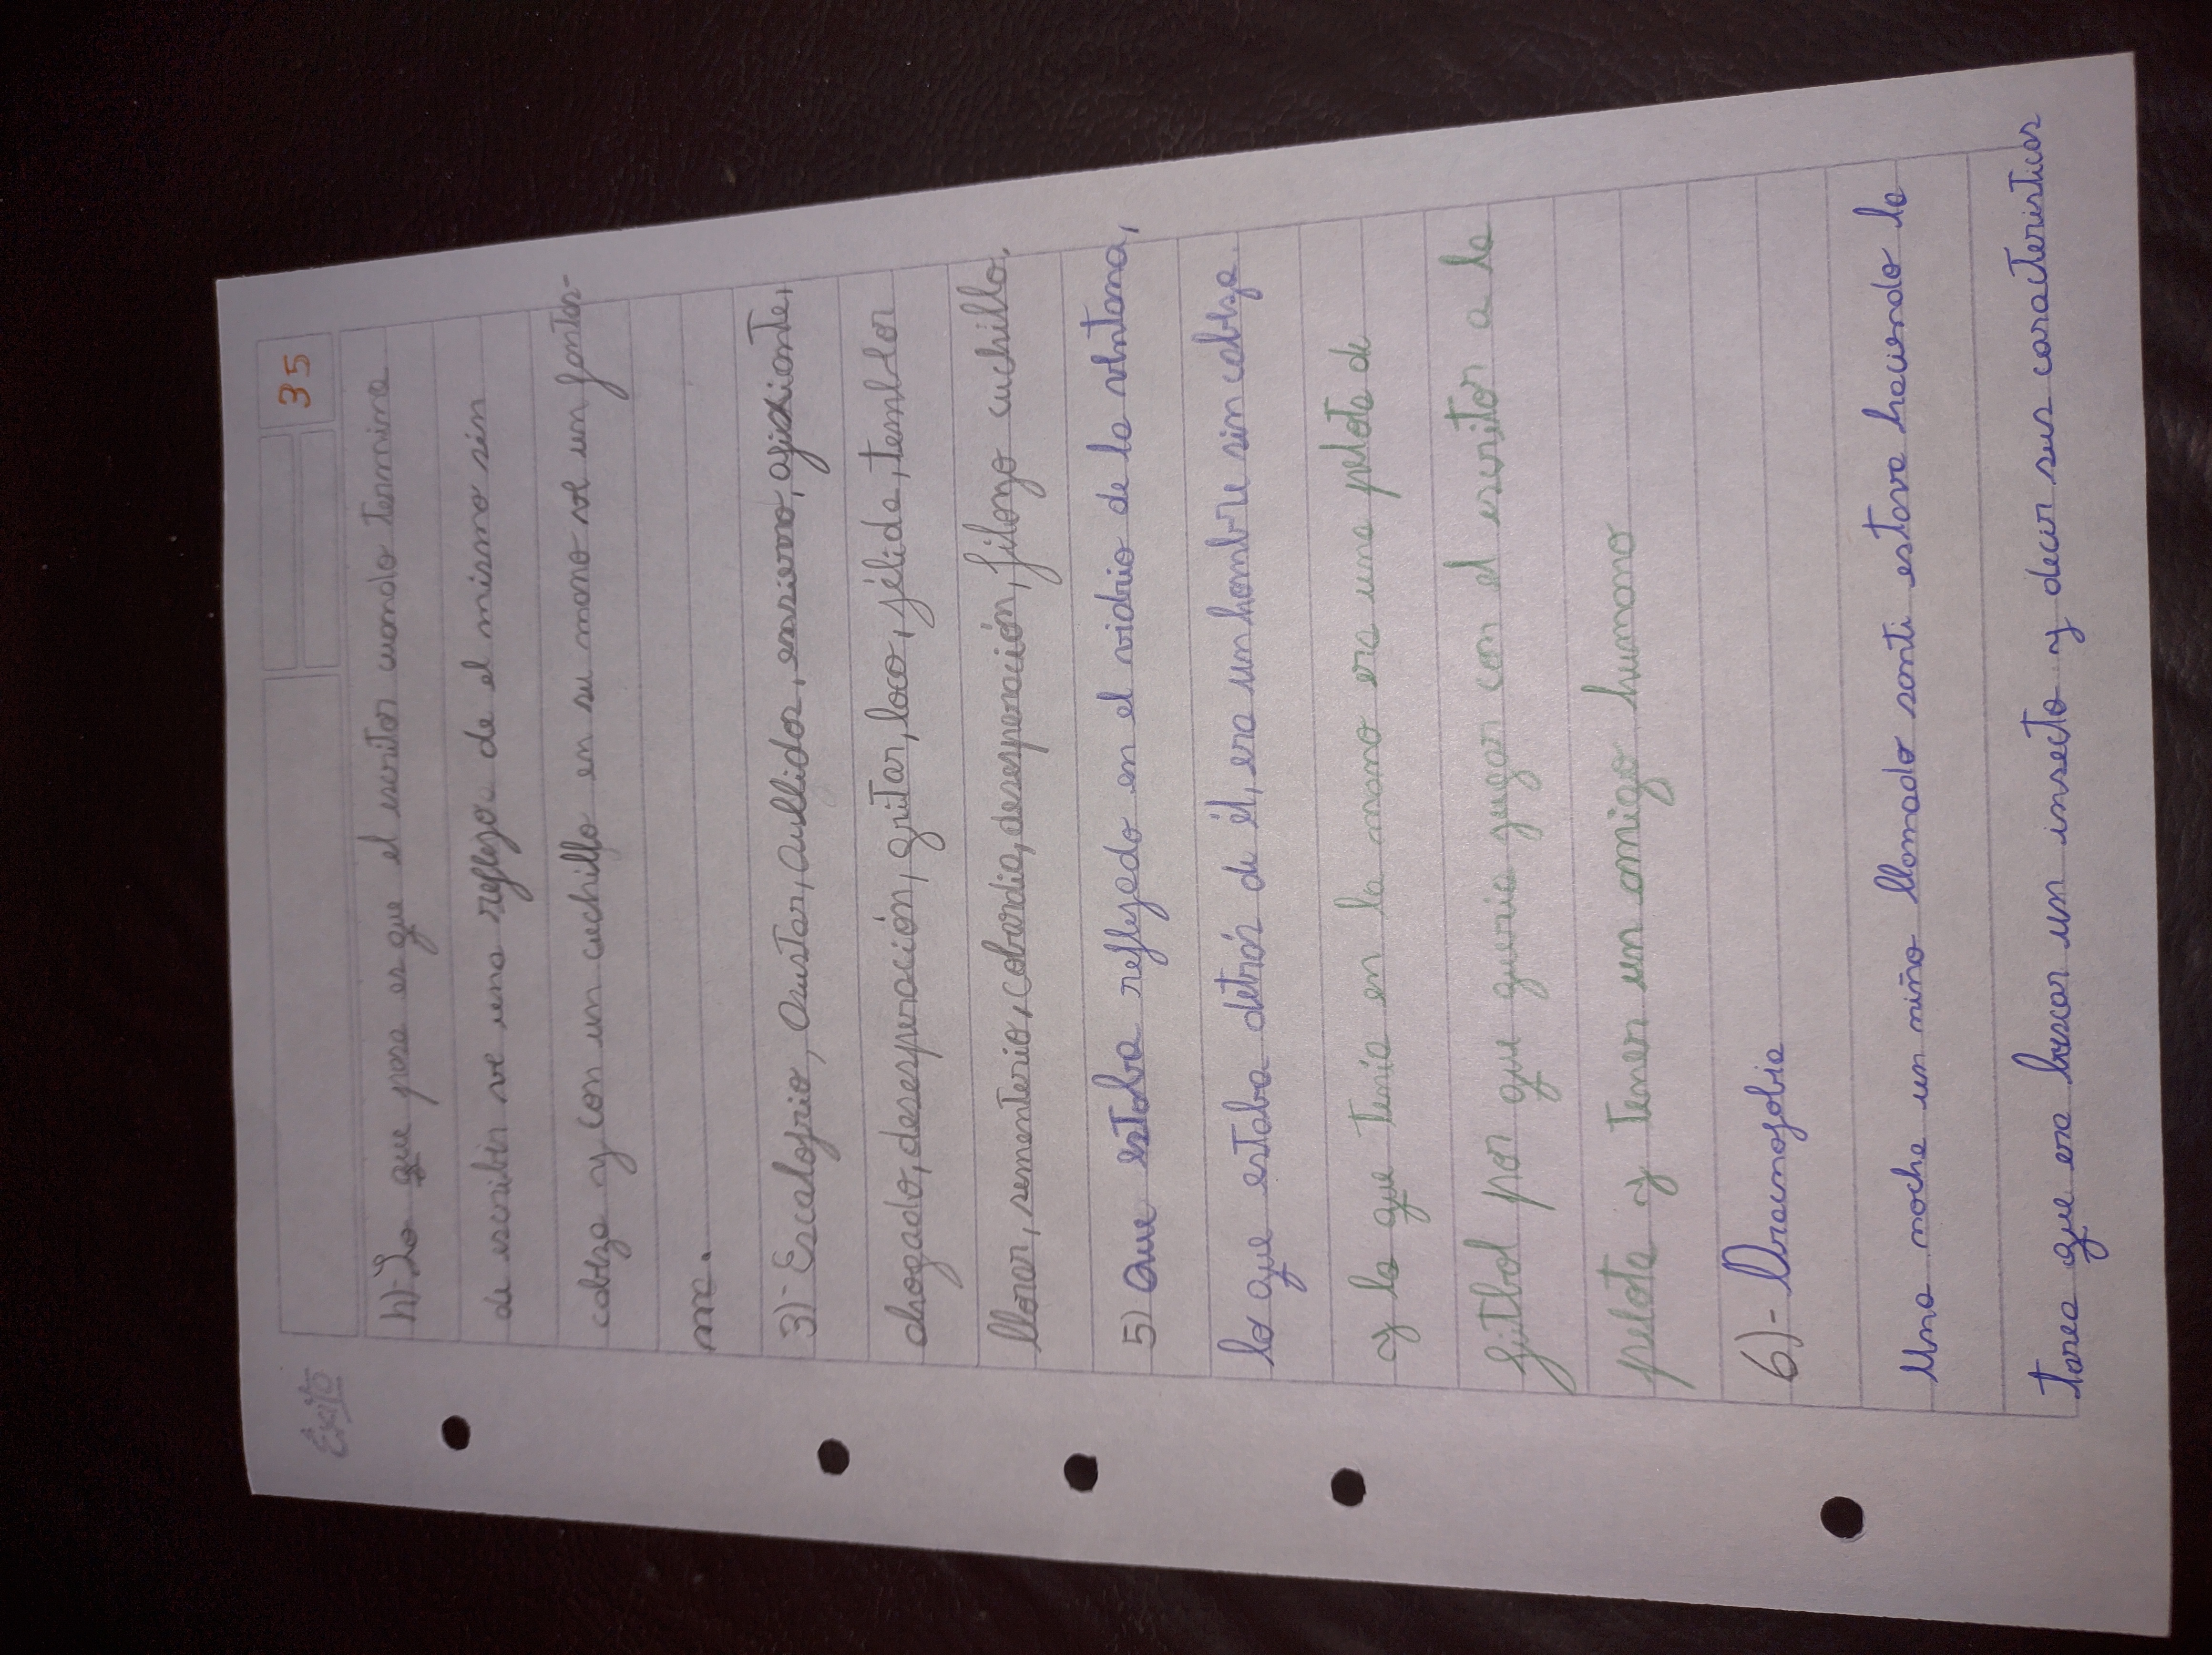 Éxito
35
h)- Lo que pasa es que el escritor cuando termina
de escribir ve una reflejo de el mismo sin
cabeza y con un cuchillo en su mano ve un fantas-
ma.
3)- Escalofrio, asustar, aullidos, enssierro, asfixiante,
ahogado, desesperación, gritar, loco, jélida, temblor
llorar, sementerio, cobardia, desesperación, filonzo cuchillo.
5) que estaba reflejado en el vidrio de la ventana,
lo que estaba detrás de él, era un hombre sin cabeza.
y lo que tenia en la mano era una pelota de
fútbol por que queria jugar con el escritor a la
pelota y tener un amigo humano
6)- Aracnofobia
Una noche un niño llamado santi estava haciendo la
tarea que era buscar un insecto y decir sus caracteristicas